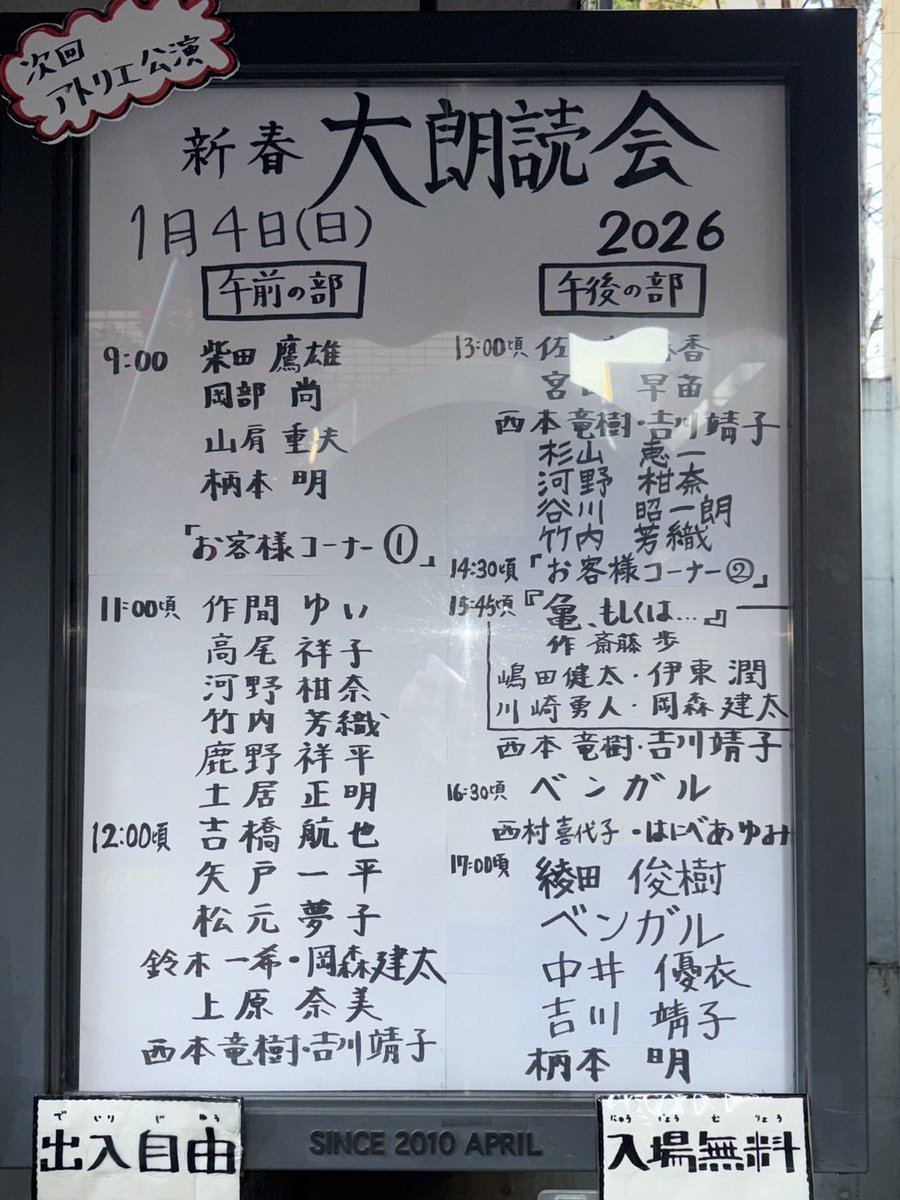 次回
アトリエ公演
新春 大朗読会
1月4日(日) 2026
午前の部
9:00 柴田 鷹雄
岡部 尚
山肩 重夫
柄本 明
「お客様コーナー①」
11:00頃 作間 ゆい
高尾 祥子
河野 柑奈
竹内 芳織
鹿野 祥平
土居 正明
12:00頃 吉橋 航也
矢戸 一平
松元 夢子
鈴木一希・岡森建太
上原 奈美
西本竜樹・吉川靖子
午後の部
13:00頃 佐 香
宮 早苗
西本竜樹・吉川靖子
杉山 恵一
河野 柑奈
谷川 昭一朗
竹内 芳織
14:30頃「お客様コーナー②」
15:45頃『亀、もしくは…』
作 斎藤 歩
嶋田健太・伊東潤
川崎勇人・岡森建太
西本竜樹・吉川靖子
16:30頃 ベンガル
西村喜代子・はにべあゆみ
17:00頃 綾田 俊樹
ベンガル
中井 優衣
吉川 靖子
柄本 明
で いり じ ゆう
出入自由
SINCE 2010 APRIL
にゅう じょう む りょう
入場無料